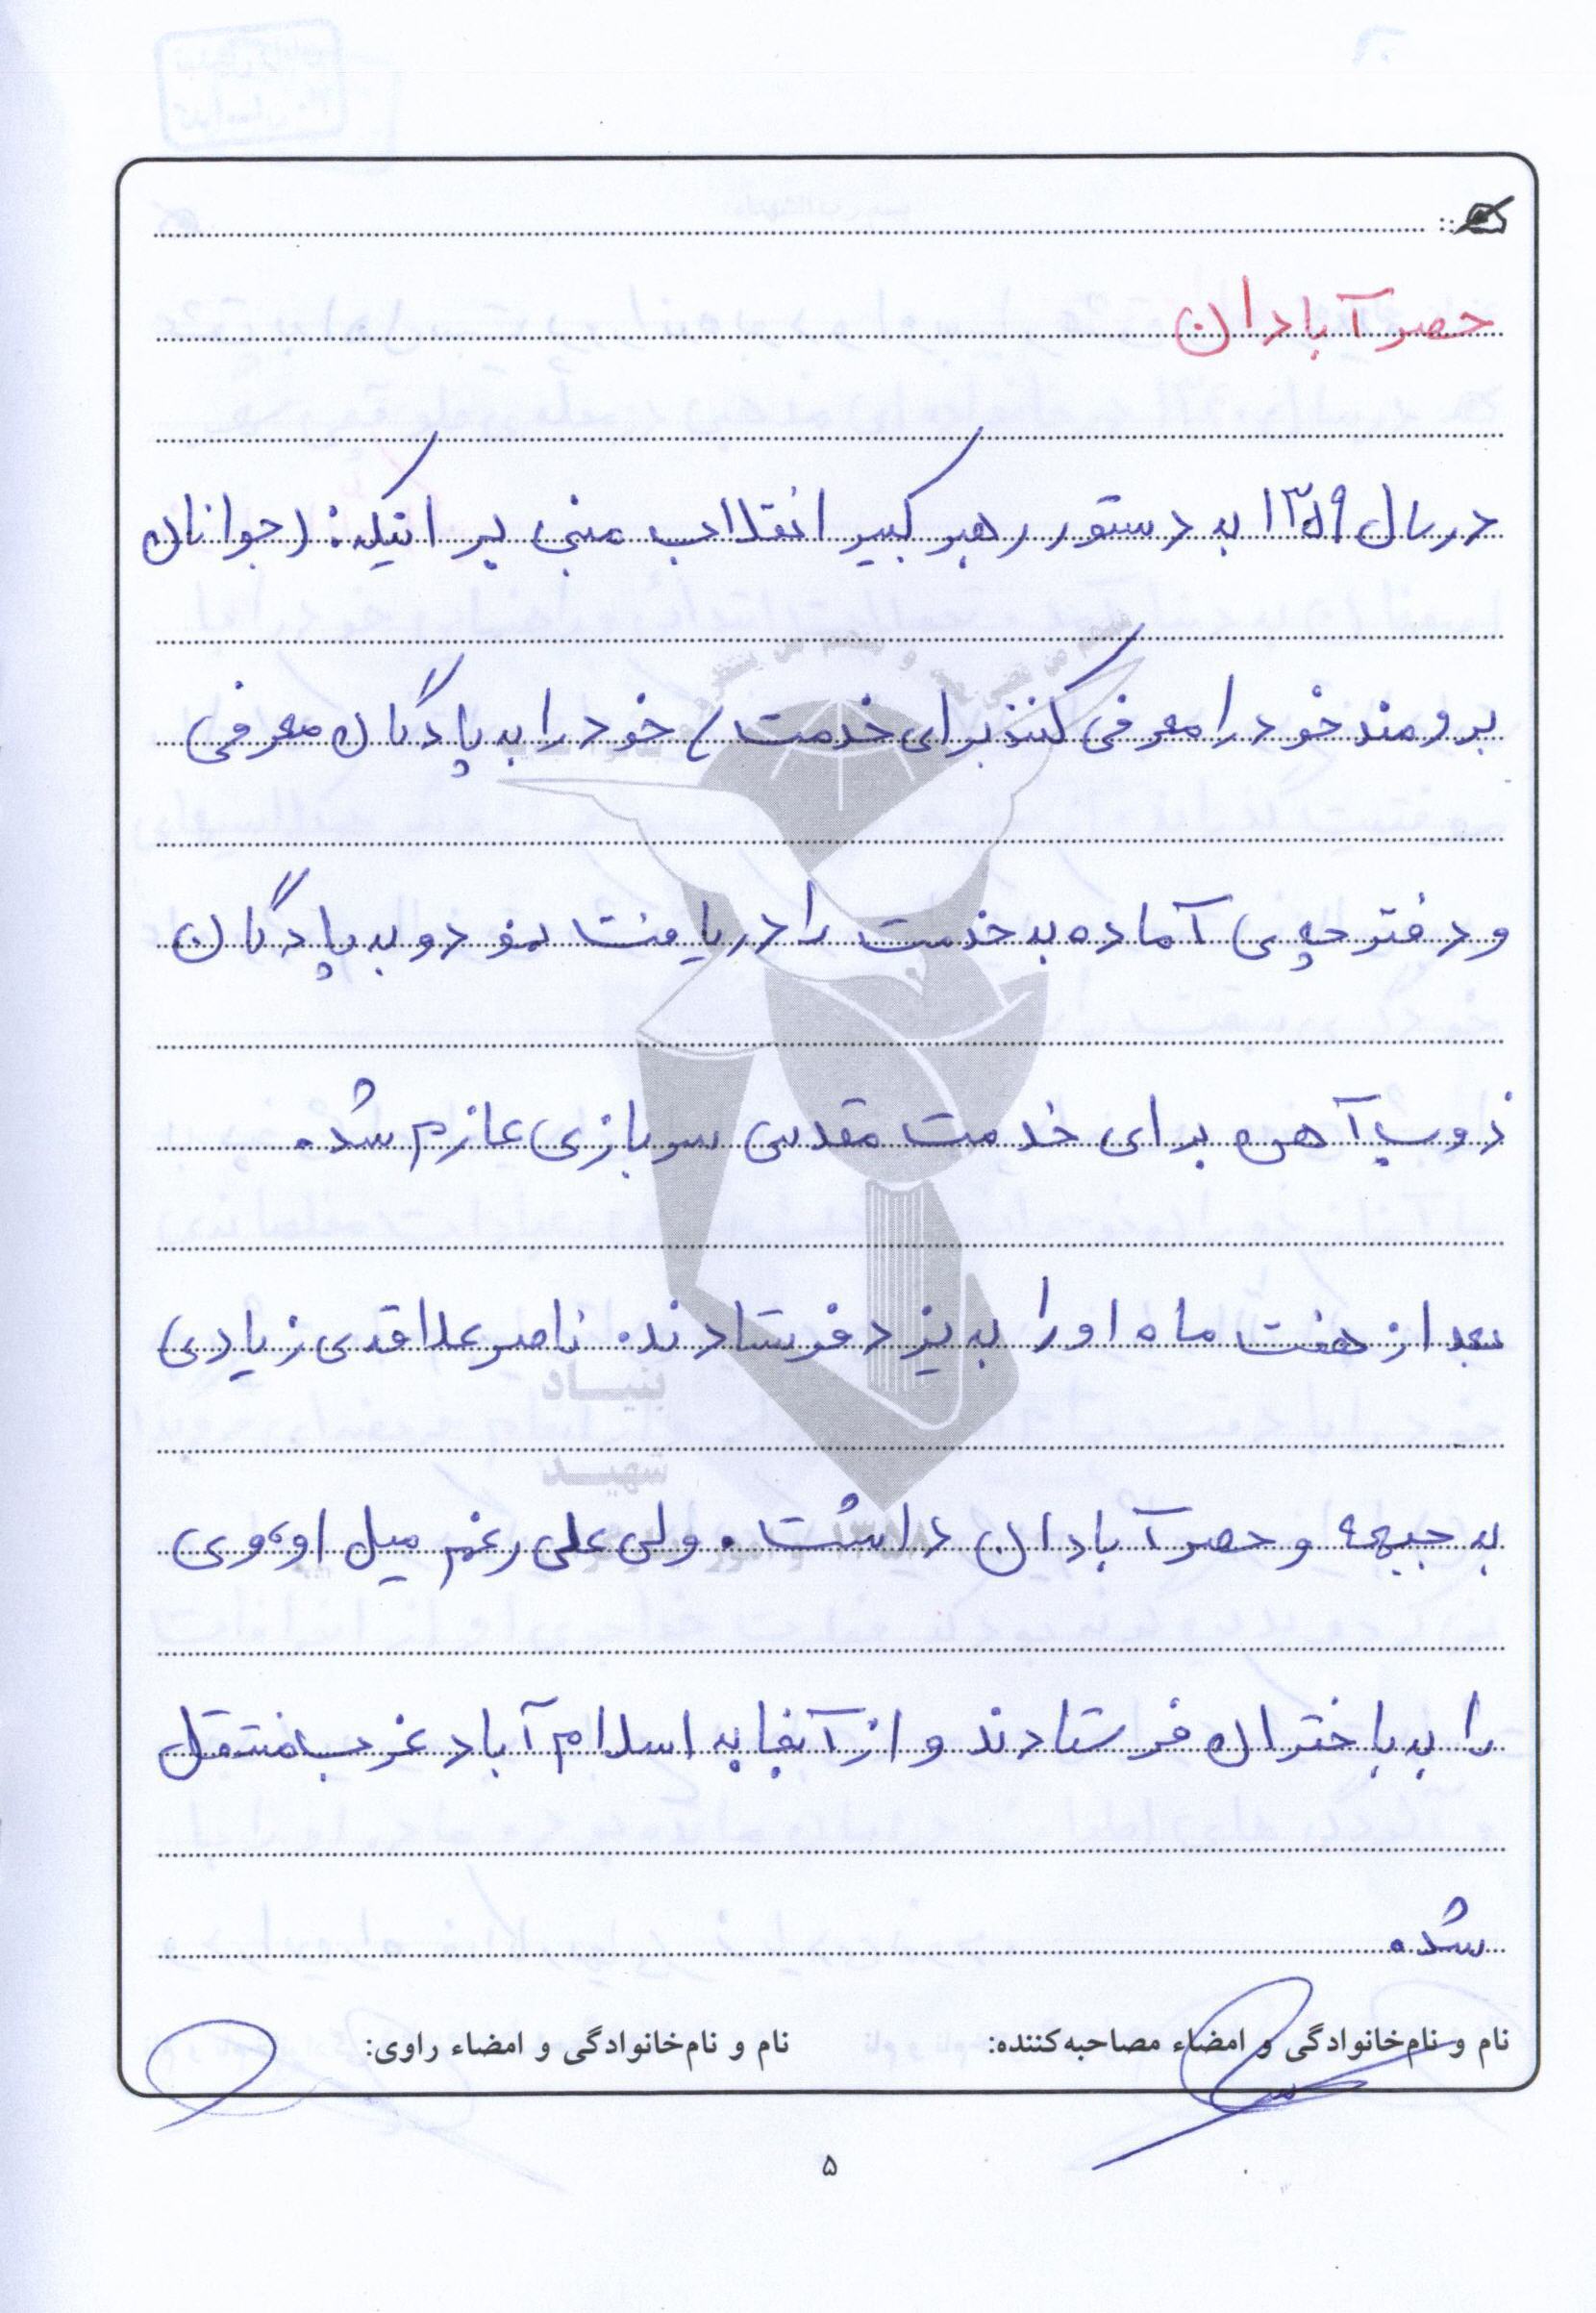 حصر آبادان
در سال ۱۳۵۹ به دستور رهبر کبیر انقلاب مبنی بر اینکه: (جوانان
برومند خود را معرفی کنند برای خدمت) خود را به پادگان معرفی
و دفترچه ی آماده به خدمت را دریافت نمود و به پادگان
ذوب آهن برای خدمت مقدس سربازی عازم شد.
بعد از هفت ماه او را به یزد فرستادند. ناصر علاقه ی زیادی
به جبهه و حصر آبادان داشت. ولی علی رغم میل او، وی
را به باختران فرستادند و از آنجا به اسلام آباد غرب منتقل
شد.
بنیاد
شهید
نام و نام‌خانوادگی و امضاء مصاحبه‌کننده:
نام و نام‌خانوادگی و امضاء راوی:
۵